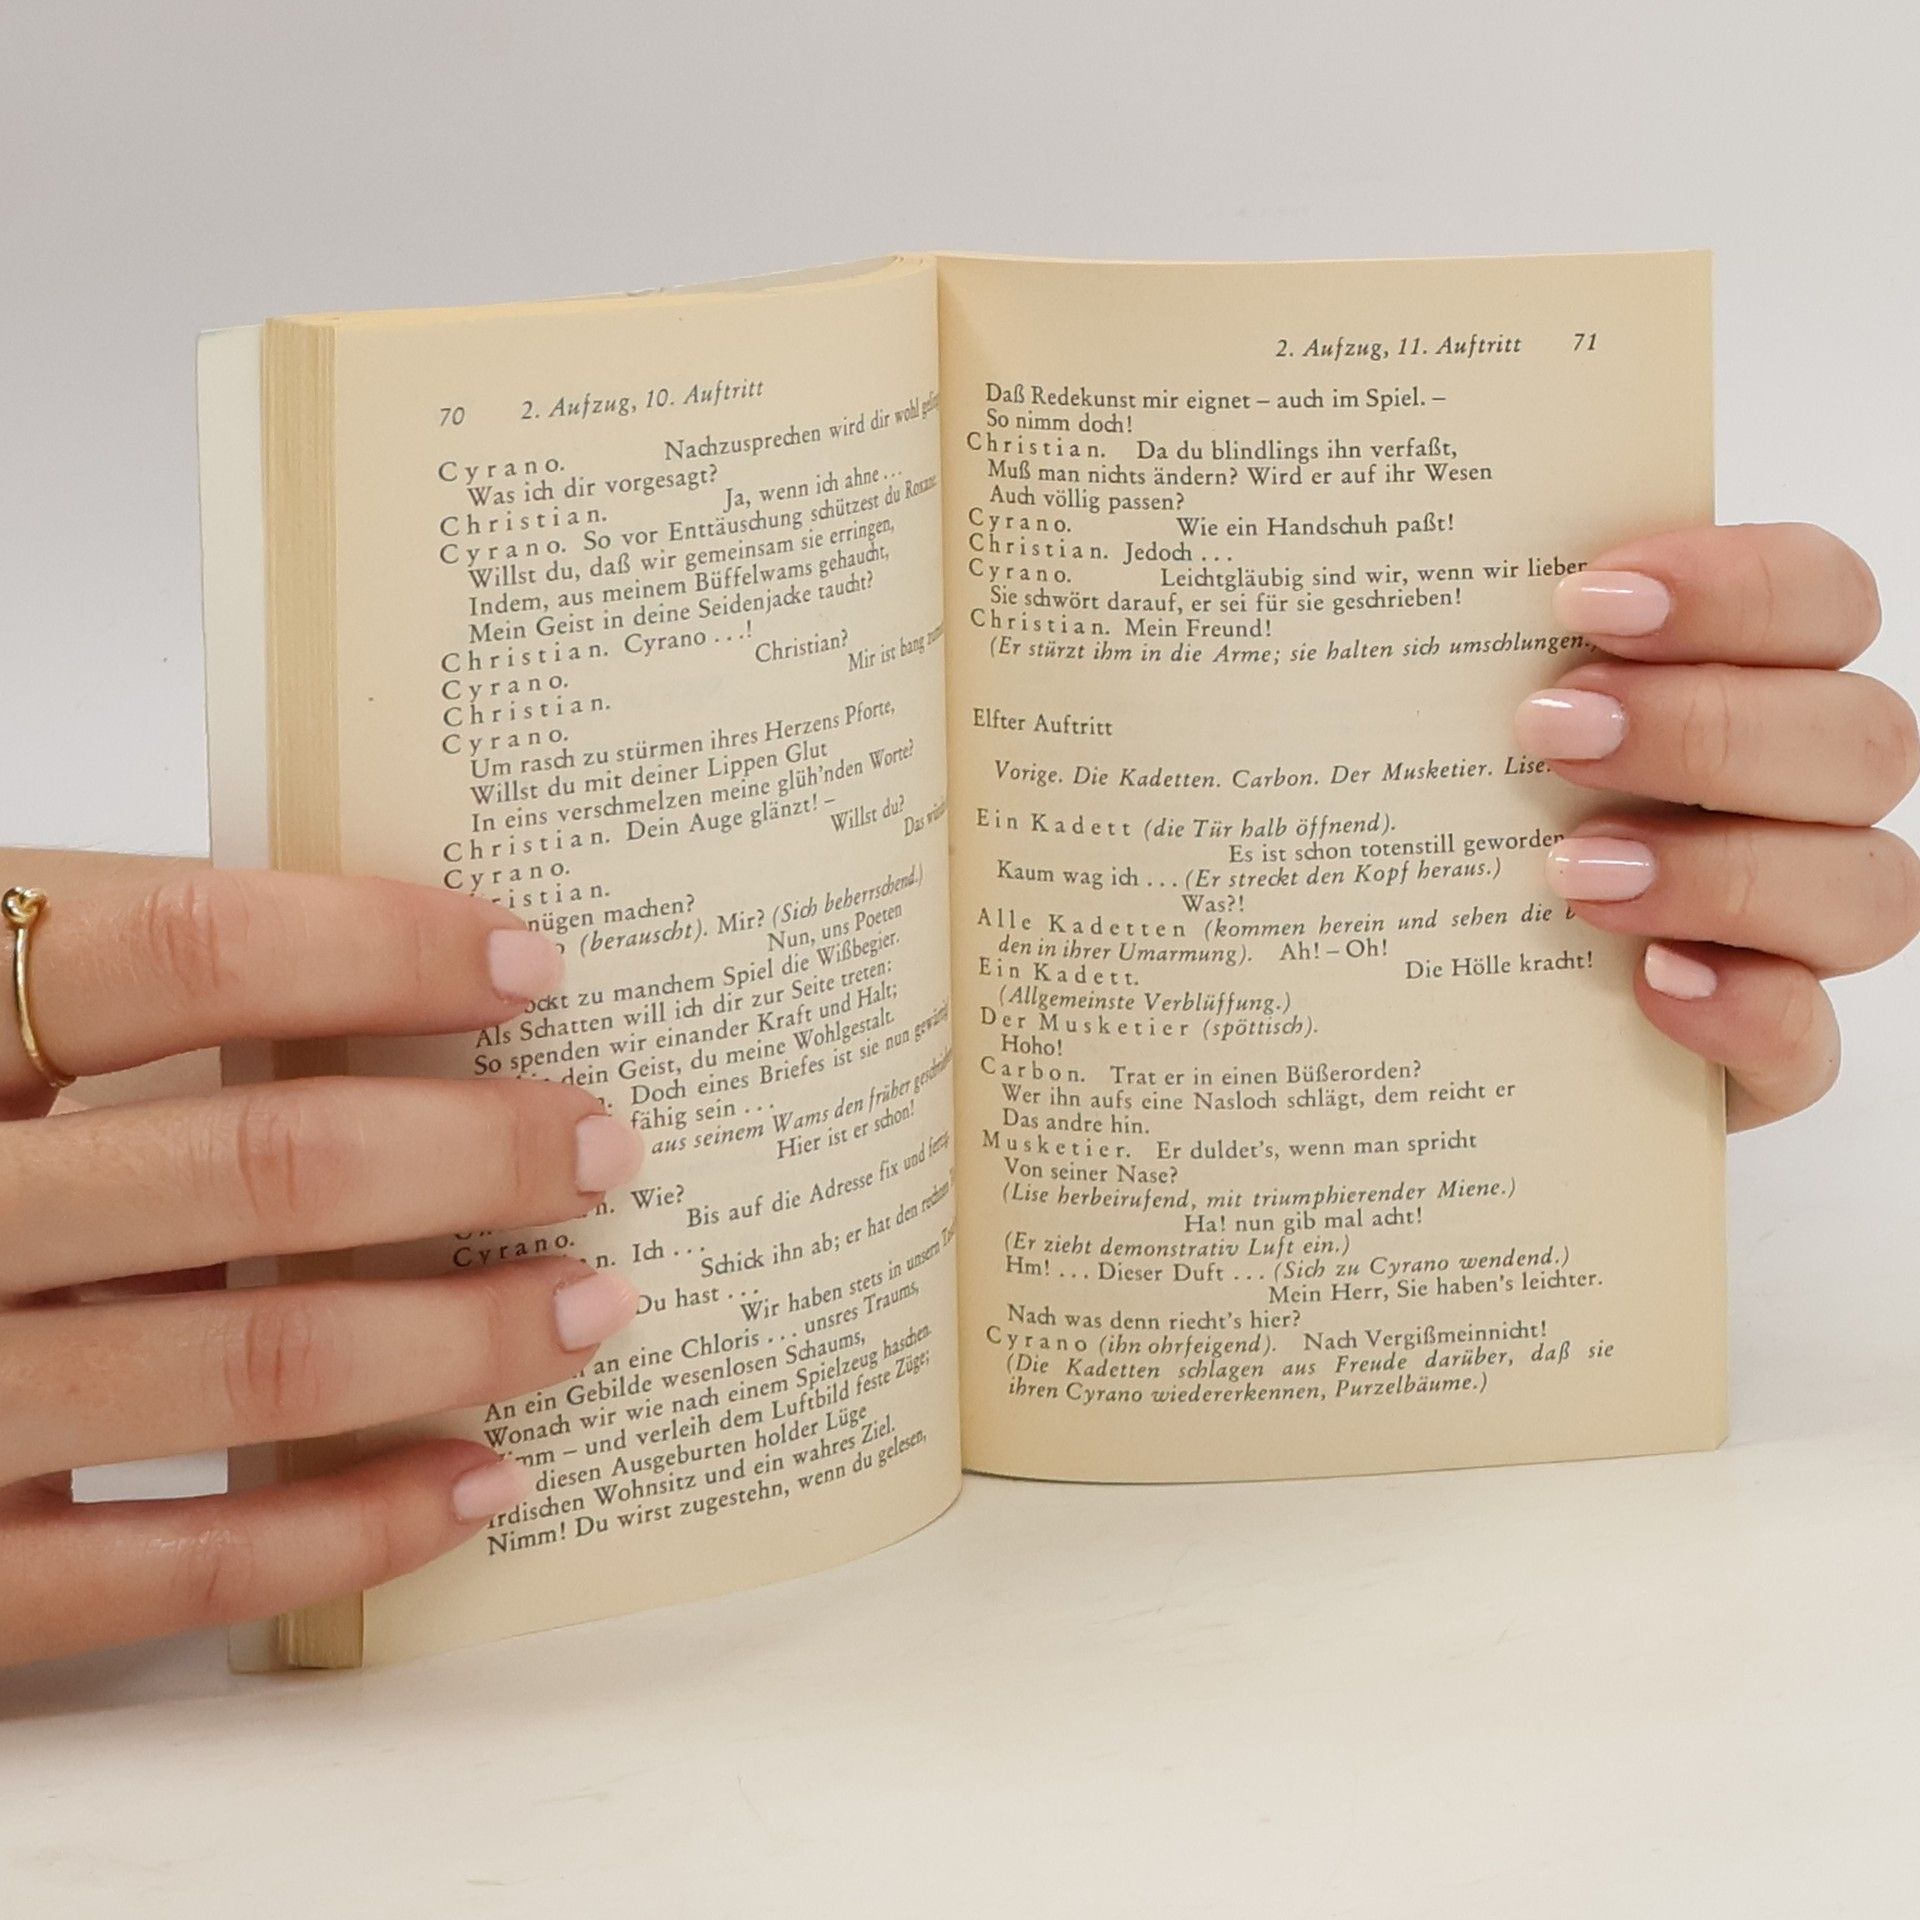 70 2. Aufzug, 10. Auftritt
Nachzusprechen wird dir wohl
Cyrano.
Was ich dir vorgesagt?
Christian. Ja, wenn ich ahne ...
Cyrano. So vor Enttäuschung schützest du Roxane.
Willst du, daß wir gemeinsam sie erringen,
Indem, aus meinem Büffelwams gehaucht,
Mein Geist in deine Seidenjacke taucht?
Christian. Cyrano ...!
Cyrano. Christian?
Christian. Mir ist bang
Cyrano.
Um rasch zu stürmen ihres Herzens Pforte,
Willst du mit deiner Lippen Glut
In eins verschmelzen meine glüh'nden Worte?
Christian. Dein Auge glänzt! –
Cyrano. Willst du?
Das
machen?
(berauscht). Mir? (Sich beherrschend.)
Nun, uns Poeten
zu manchem Spiel die Wißbegier.
Als Schatten will ich dir zur Seite treten:
So spenden wir einander Kraft und Halt;
dein Geist, du meine Wohlgestalt.
Doch eines Briefes ist sie nun
fähig sein ...
aus seinem Wams den früher
Hier ist er schon!
Wie?
Cyrano. Bis auf die Adresse fix und
Ich ...
Schick ihn ab; er hat den rechten
Du hast ...
Wir haben stets in unsern
an eine Chloris ... unsres Traums,
An ein Gebilde wesenlosen Schaums,
Wonach wir wie nach einem Spielzeug haschen.
– und verleih dem Luftbild feste Züge;
diesen Ausgeburten holder Lüge
Wohnsitz und ein wahres Ziel.
Nimm! Du wirst zugestehn, wenn du gelesen,
2. Aufzug, 11. Auftritt 71
Daß Redekunst mir eignet – auch im Spiel. –
So nimm doch!
Christian. Da du blindlings ihn verfaßt,
Muß man nichts ändern? Wird er auf ihr Wesen
Auch völlig passen?
Cyrano. Wie ein Handschuh paßt!
Christian. Jedoch ...
Cyrano. Leichtgläubig sind wir, wenn wir lieben
Sie schwört darauf, er sei für sie geschrieben!
Christian. Mein Freund!
(Er stürzt ihm in die Arme; sie halten sich umschlungen.)
Elfter Auftritt
Vorige. Die Kadetten. Carbon. Der Musketier. Lise.
Ein Kadett (die Tür halb öffnend).
Es ist schon totenstill geworden
Kaum wag ich ... (Er streckt den Kopf heraus.)
Was?!
Alle Kadetten (kommen herein und sehen die
den in ihrer Umarmung). Ah! – Oh!
Ein Kadett. Die Hölle kracht!
(Allgemeinste Verblüffung.)
Der Musketier (spöttisch).
Hoho!
Carbon. Trat er in einen Büßerorden?
Wer ihn aufs eine Nasloch schlägt, dem reicht er
Das andre hin.
Musketier. Er duldet's, wenn man spricht
Von seiner Nase?
(Lise herbeirufend, mit triumphierender Miene.)
Ha! nun gib mal acht!
(Er zieht demonstrativ Luft ein.)
Hm! ... Dieser Duft ... (Sich zu Cyrano wendend.)
Mein Herr, Sie haben's leichter.
Nach was denn riecht's hier?
Cyrano (ihn ohrfeigend). Nach Vergißmeinnicht!
(Die Kadetten schlagen aus Freude darüber, daß sie
ihren Cyrano wiedererkennen, Purzelbäume.)